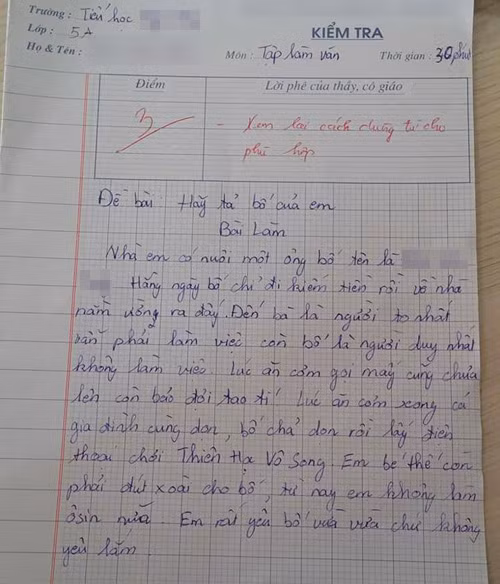 Trường : Tiểu học
Lớp : 5A
Họ & Tên :
KIỂM TRA
Môn : Tập làm văn Thời gian : 30 phút
Điểm Lời phê của thầy, cô giáo
3 - Xem lại cách dùng từ cho
phù hợp
Đề bài : Hãy tả bố của em
Bài Làm
Nhà em có nuôi một ông bố tên là
Hằng ngày bố chỉ đi kiếm tiền rồi về nhà
nằm ườn ra đấy. Đến bà là người to nhất
vẫn phải làm việc còn bố là người duy nhất
không làm việc. Lúc ăn cơm gọi mãi cũng chưa
lên còn bảo đợi tao tí. Lúc ăn cơm xong cả
gia đình cùng dọn, bố chả dọn rồi lấy điện
thoại chơi Thiên Hạ Vô Song. Em bé thế còn
phải đút xoài cho bố, từ nay em không làm
ôsin nữa. Em rất yêu bố vừa vừa chứ không
yêu lắm.